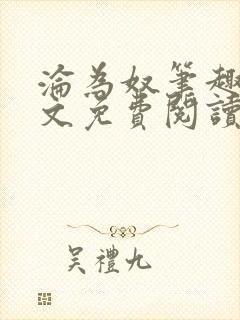 淪為奴筆趣
文免費閱讀
吳禮九